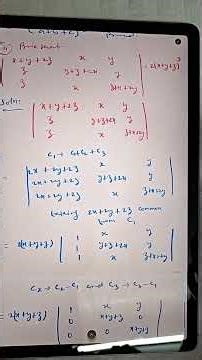 Prove that
x+y+2z x y
z y+z+2x y = 2(x+y+z)³
z x z+x+2y
Soln:
x+y+2z x y
z y+z+2x y
z x z+x+2y
C₁ → C₁+C₂+C₃
2x+2y+2z x y
2x+2y+2z y+z+2x y
2x+2y+2z x z+x+2y
taking 2x+2y+2z common
from C₁
= 2(x+y+z) 1 x y
1 y+z+2x y
1 x z+x+2y
= 2(x+y+z) 1 x y
0 x+y+z 0
0 0 x+y+z